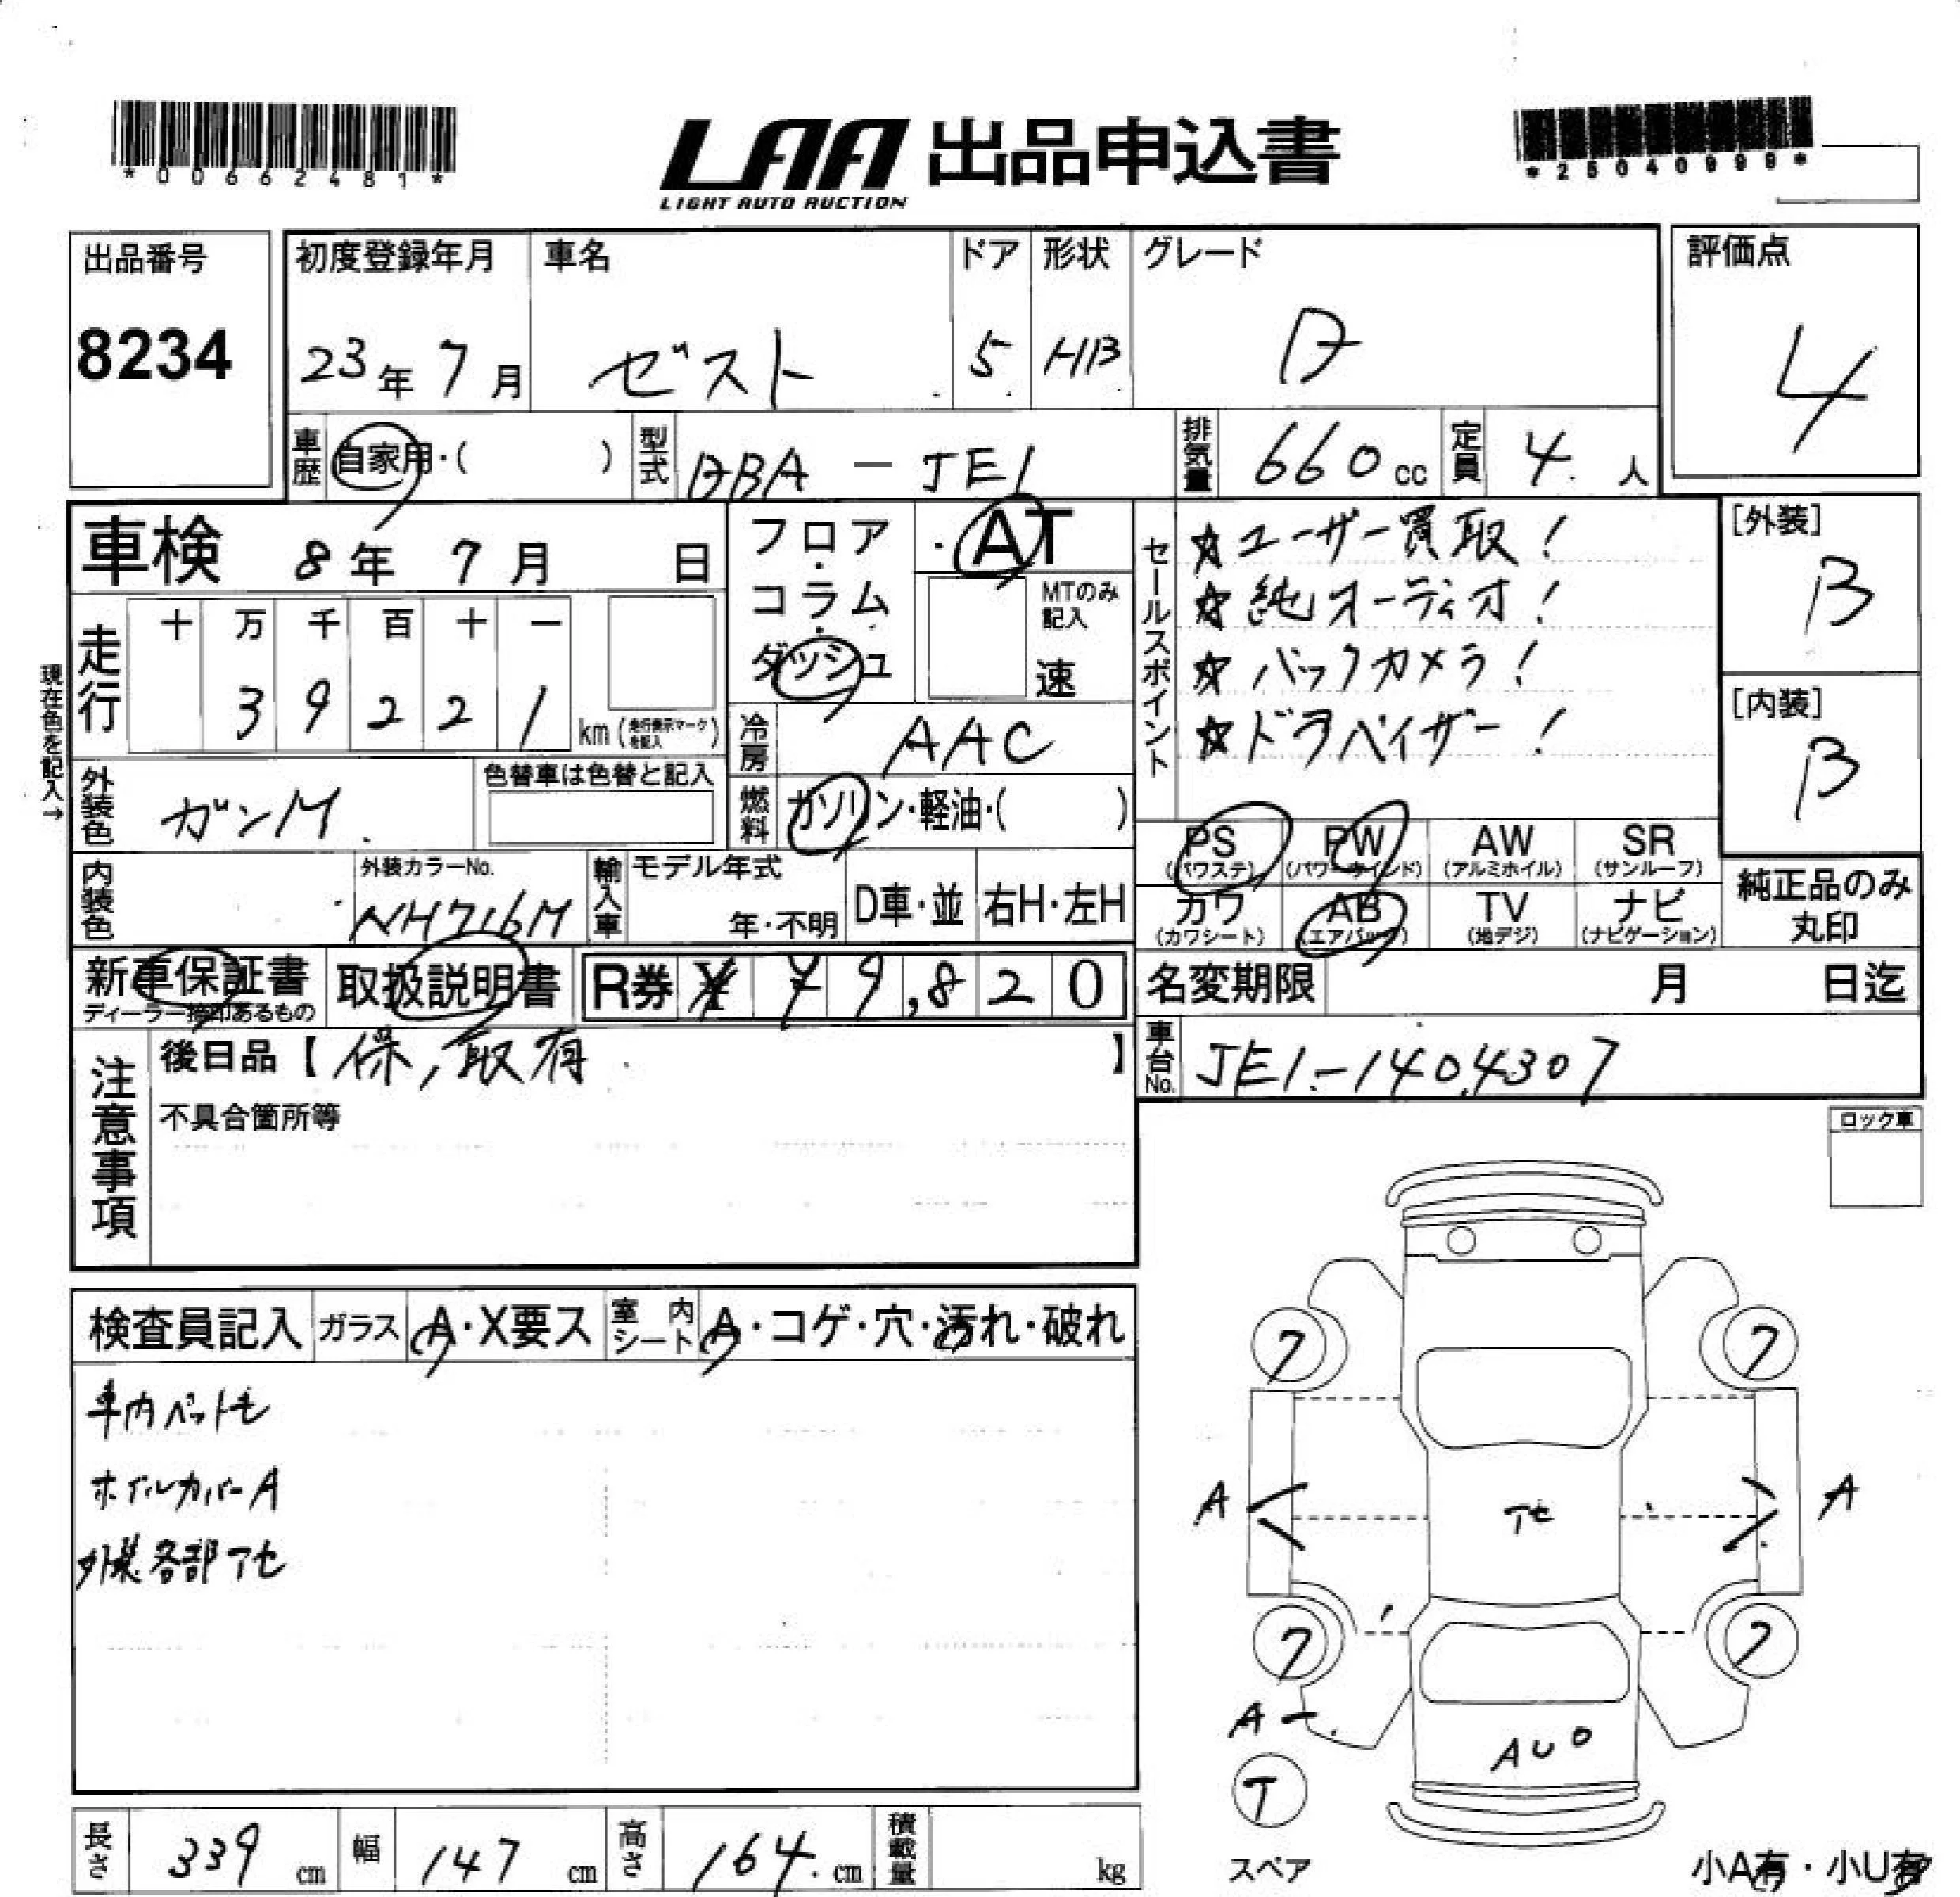 *00662481*
LAA 出品申込書
LIGHT AUTO AUCTION
*25040999*
出品番号
8234
初度登録年月 車名 ドア 形状 グレード
23年 7月 ゼスト 5 HB D
評価点
4
車歴 自家用・( ) 型式 DBA-JE1 排気量 660cc 定員 4人
車検 8年 7月 日
フロア・コラム・ダッシュ
AT
MTのみ記入
速
セールスポイント
☆ユーザー買取!
☆純オーディオ!
☆バックカメラ!
☆ドラバイザー!
[外装]
B
[内装]
B
現在色を記入→
走行 十 万 千 百 十 一
39221 km (走行表示マークを記入)
冷房 AAC
外装色 ガンM 色替車は色替と記入
燃料 ガソリン・軽油・( )
PS (パワステ) PW (パワーウインド) AW (アルミホイル) SR (サンルーフ)
カワ (カワシート) AB (エアバッグ) TV (地デジ) ナビ (ナビゲーション)
純正品のみ丸印
内装色 外装カラーNo. NH716M 輸入車 モデル年式 年・不明 D車・並 右H・左H
新車保証書 ディーラー捺印あるもの 取扱説明書 R券 ¥ ¥9,820
名変期限 月 日迄
車台No. JE1-1404307
注意事項
後日品【保,取有】
不具合箇所等
ロック車
検査員記入 ガラス A・X要ス 室内シート A・コゲ・穴・汚れ・破れ
車内ペットモ
ホイルカバーA
外装各部アセ
7 7
A アセ A
7 7
A
AUO
T
スペア
小A有・小U有
長さ 339cm 幅 147cm 高さ 164cm 積載量 kg